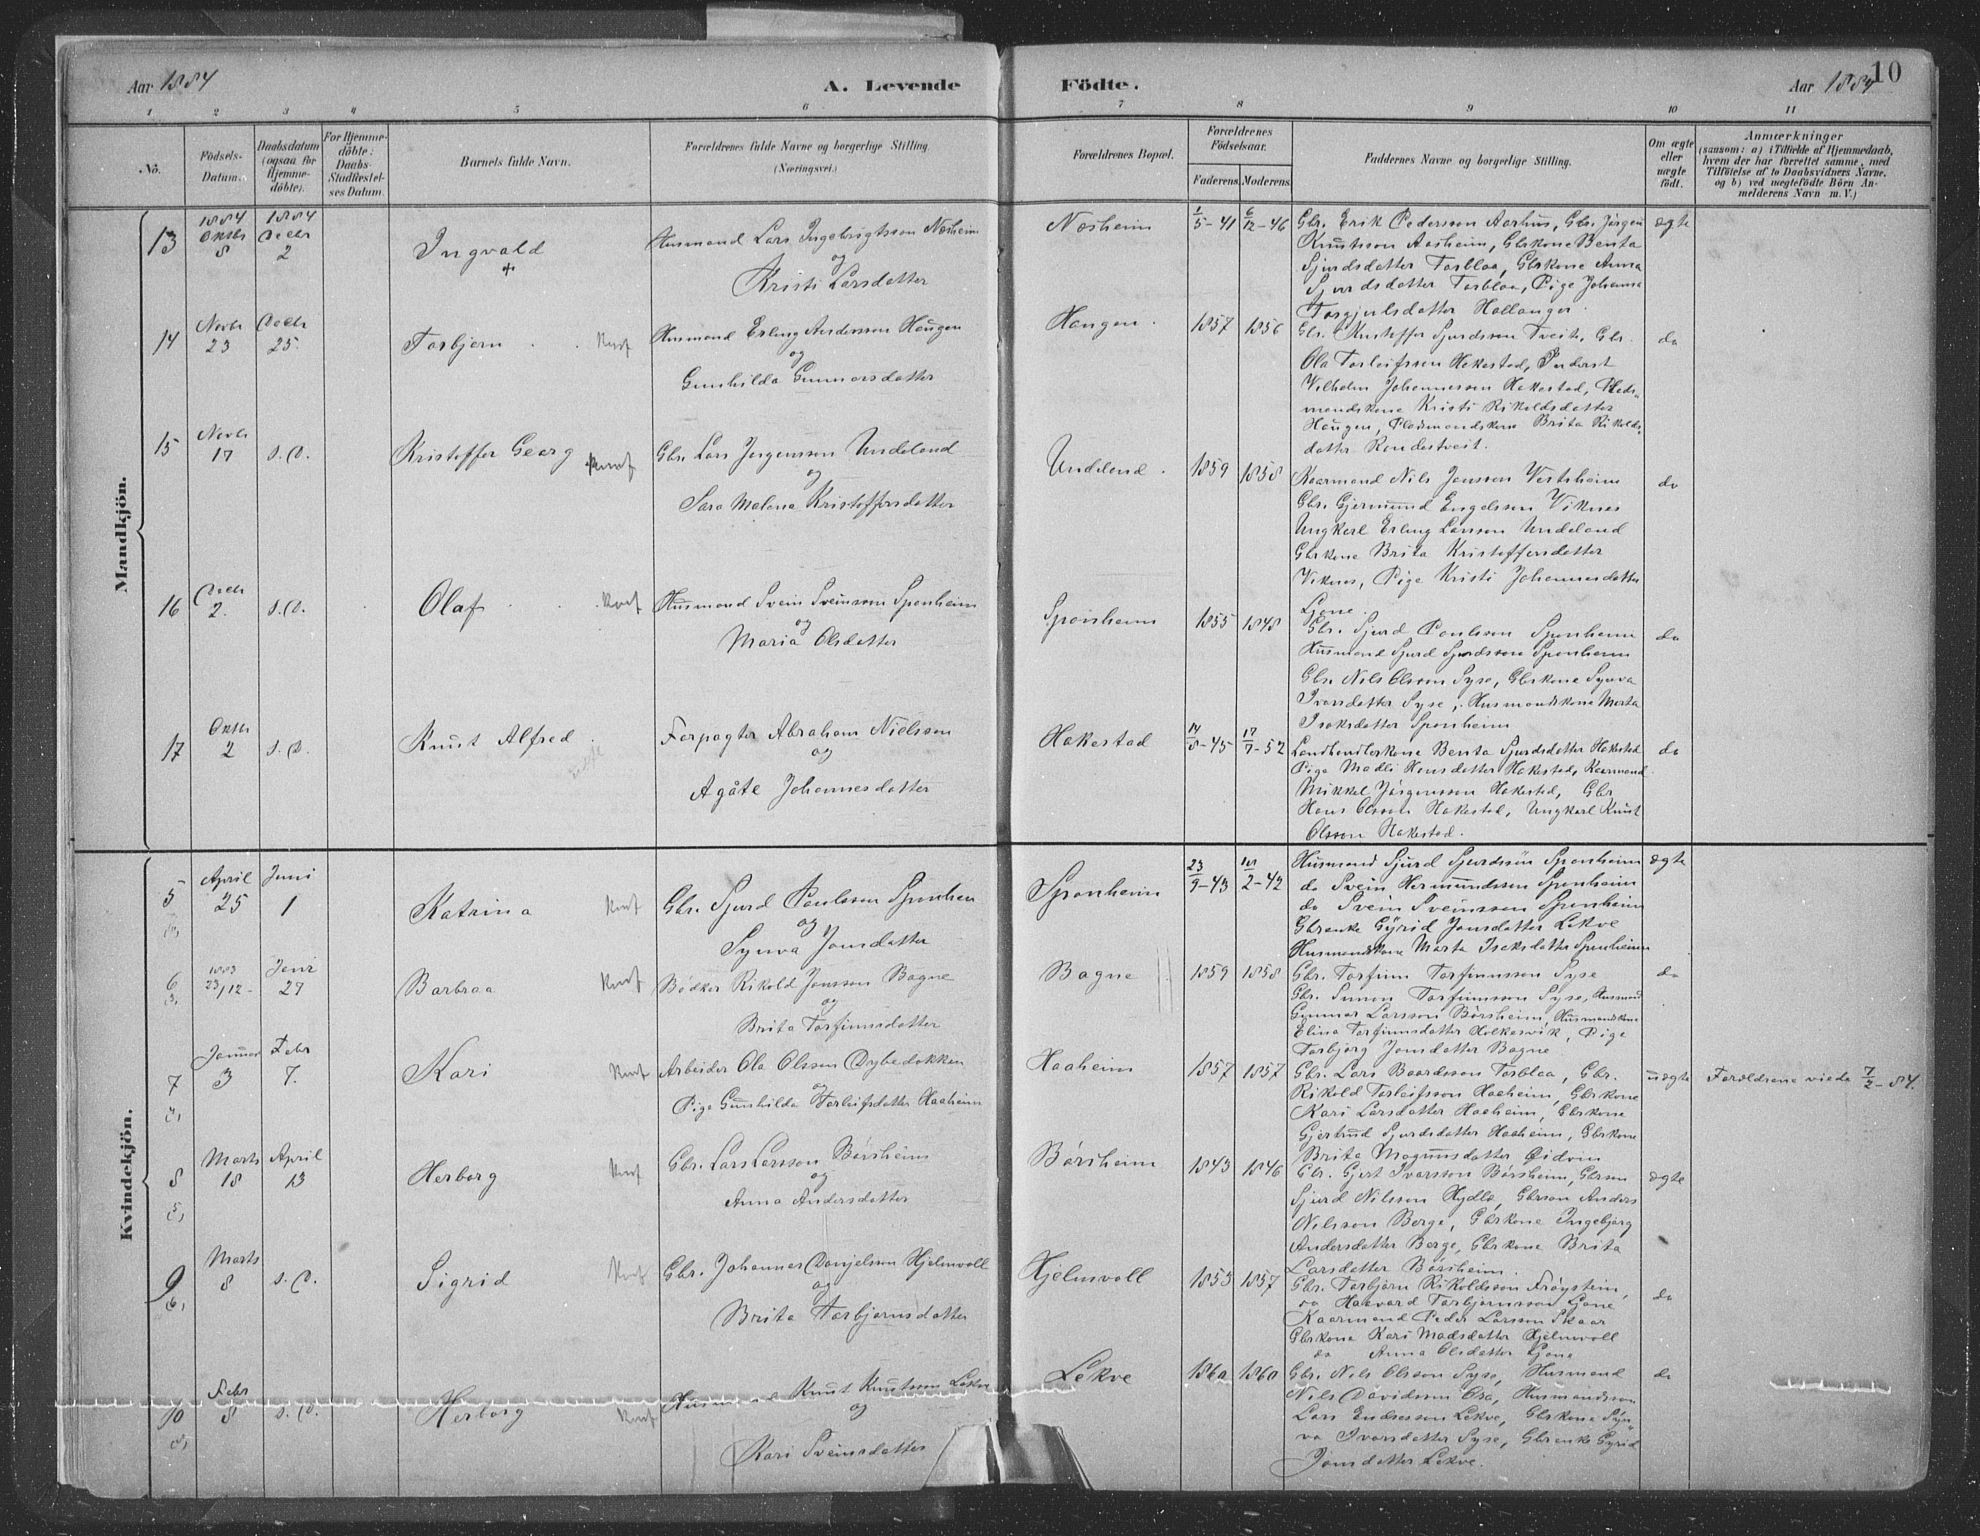 Aar 1884
A. Levende Födte.
Aar 1884
10
1 2 3 4 5 6 7 8 9 10 11
No.
Födsels-Datum.
Daabsdatum (ogsaa for Hjemmedöbte).
For Hjemmedöbte: Daabs-Stadfæstelses Datum.
Barnets fulde Navn.
Forældrenes fulde Navne og borgerlige Stilling. (Næringsvei.)
Forældrenes Bopæl.
Forældrenes Födselsaar.
Faderens. Moderens.
Faddernes Navne og borgerlige Stilling.
Om ægte eller uægte födt.
Anmærkninger
(saasom: a) i Tilfælde af Hjemmedaab,
hvem der har forrettet samme, med
Tilföielse af to Daabsvidners Navne,
og b) ved uægtefödte Börn An-
melderens Navn m. V.)
Mandkjön.
13
1884 Oktbr 8
1884 Decbr 2
Ingvald
+
Husmand Lars Ingebrigtsson Næsheim
og
Kristi Larsdatter
Næsheim
1/5-41
6/12-46
Gbr. Erik Pederssen Aarhus, Gbr. Jörgen
Knutsson Aasheim, Gbrkone Benta
Sjurdsdatter Torblaa, Gbrkone Anna
Sjurdsdatter Torblaa, Pige Johanna
Torgjulsdatter Hallanger.
ægte
14
Novbr 23
Decbr 25.
Torbjørn
Husmand Erling Anderssen Haugen
og
Gunhilda Gunnarsdatter
Haugen.
1857
1856
Gbr. Kristoffer Sjurdsson Tveite, Gbr.
Ola Torleifssen Hakestad, Inderst
Vilhelm Johannessen Hakestad, Plads-
mandskone Kristi Rikoldsdatter
Haugen, Pladsmandskone Brita Rikolds-
datter Rondestveit.
do
15
Novbr 17
s.D.
Kristoffer Georg
Gbr. Lars Jørgensson Undeland
og
Sara Malena Kristoffersdatter
Undeland.
1859
1858
Kaarmand Nils Jonsson Vestrheim
Gbr. Gjermund Engelssen Viknes
Ungkarl Erling Larssen Undeland
Gbrkone Brita Kristoffersdatter
Viknes, Pige Kristi Johannesdatter
Ljone.
do
16
Decbr 2.
s.D.
Olaf
Husmand Svein Sveinsson Sponheim
og
Maria Olsdatter
Sponheim
1855
1848
Gbr. Sjurd Paulsson Sponheim
Husmand Sjurd Sjurdsson Sponheim
Gbr. Nils Olsson Syse, Gbrkone Synva
Ivarsdatter Syse, Husmandskone Marta
Isaksdatter Sponheim
do
17
Oktbr 2
s.D.
Knut Alfred
Forpagter Abraham Nielssen
og
Agåte Johannesdatter
Hakestad
14/8-45
17/7-52
Landhandlerkone Benta Sjurdsdatter Hakestad
Pige Madli Hansdatter Hakestad, Kaarmand
Mikkel Jörgensson Hakestad, Gbr
Hans Olsson Hakestad, Ungkarl Knut
Olsson Hakestad.
do
Kvindekjön.
5
April 25
Juni 1
Katrina
Gbr. Sjurd Paulsson Sponheim
og
Synva Jonsdatter
Sponheim
23/9-43
2-42
Husmand Sjurd Sjurdssön Sponheim
do Svein Hermundssen Sponheim
do Svein Sveinsson Sponheim
Gbrenke Gyrid Jonsdatter Lekve
Husmandskone Marta Isaksdatter Sponheim
ægte
6
1883 23/12-
Juni 29
Barbraa
Bödker Rikold Jonsson Bagne
og
Brita Torfinnsdatter
Bagne
1859
1858
Gbr. Torfinn Torfinnsson Syse
Gbr. Simon Torfinnsson Syse, Husmand
Gunnar Larsson Börsheim, Husmandskone
Elina Torfinnsdatter Holkesvik, Pige
Torbjörg Jonsdatter Bagne
do
7
Januar 3
Febr 7.
Kari
Arbeider Ola Olsson Dybedokken
og
Pige Gunhilda Torleifsdatter Haaheim
Haaheim
1857
1857
Gbr. Lars Baardsson Torblaa, Gbr.
Rikold Torleifsson Haaheim, Gbrkone
Kari Larsdatter Haaheim, Gbrkone
Gjertrud Sjurdsdatter Haaheim, Gbrkone
Brita Magnusdatter Eidven
uægte
Forældrene viede 7/2-84.
8
Marts 18
April 13
Herborg
Gbr. Lars Larsson Börsheim
og
Anna Andersdatter
Börsheim
1843
1846
Gbr. Gjert Ivarsson Börsheim, Gbrson
Sjurd Nilsson Hydle, Gbrson Anders
Nilsson Berge, Gbrkone Ingebjörg
Andersdatter Berge, Gbrkone Brita
Larsdatter Börsheim.
ægte
9
Marts 8
s.D.
Sigrid
Gbr. Johannes Danjelsson Hjelmvoll
og
Brita Torbjørnsdatter
Hjelmvoll
1853
1857
Gbr. Torbjørn Rikoldsson Fröystein,
do Haavard Torbjørnsson Ljone
Kaarmand Peder Larsson Skaar
Gbrkone Kari Madsdatter Hjelmvoll
do Anna Olsdatter Ljone
do
10
Febr 8
s.D.
Herborg
Husmand Knut Knutsson Lekve
og
Kari Sveinsdatter
Lekve
1860
1860
Gbr. Nils Olsson Syse, Husmand
Nils Davidssen Ora, Husmandsson
Lars Endresson Lekve, Gbrkone Syn-
va Ivarsdatter Syse, Gbrenke Gyrid
Jonsdatter Lekve.
do